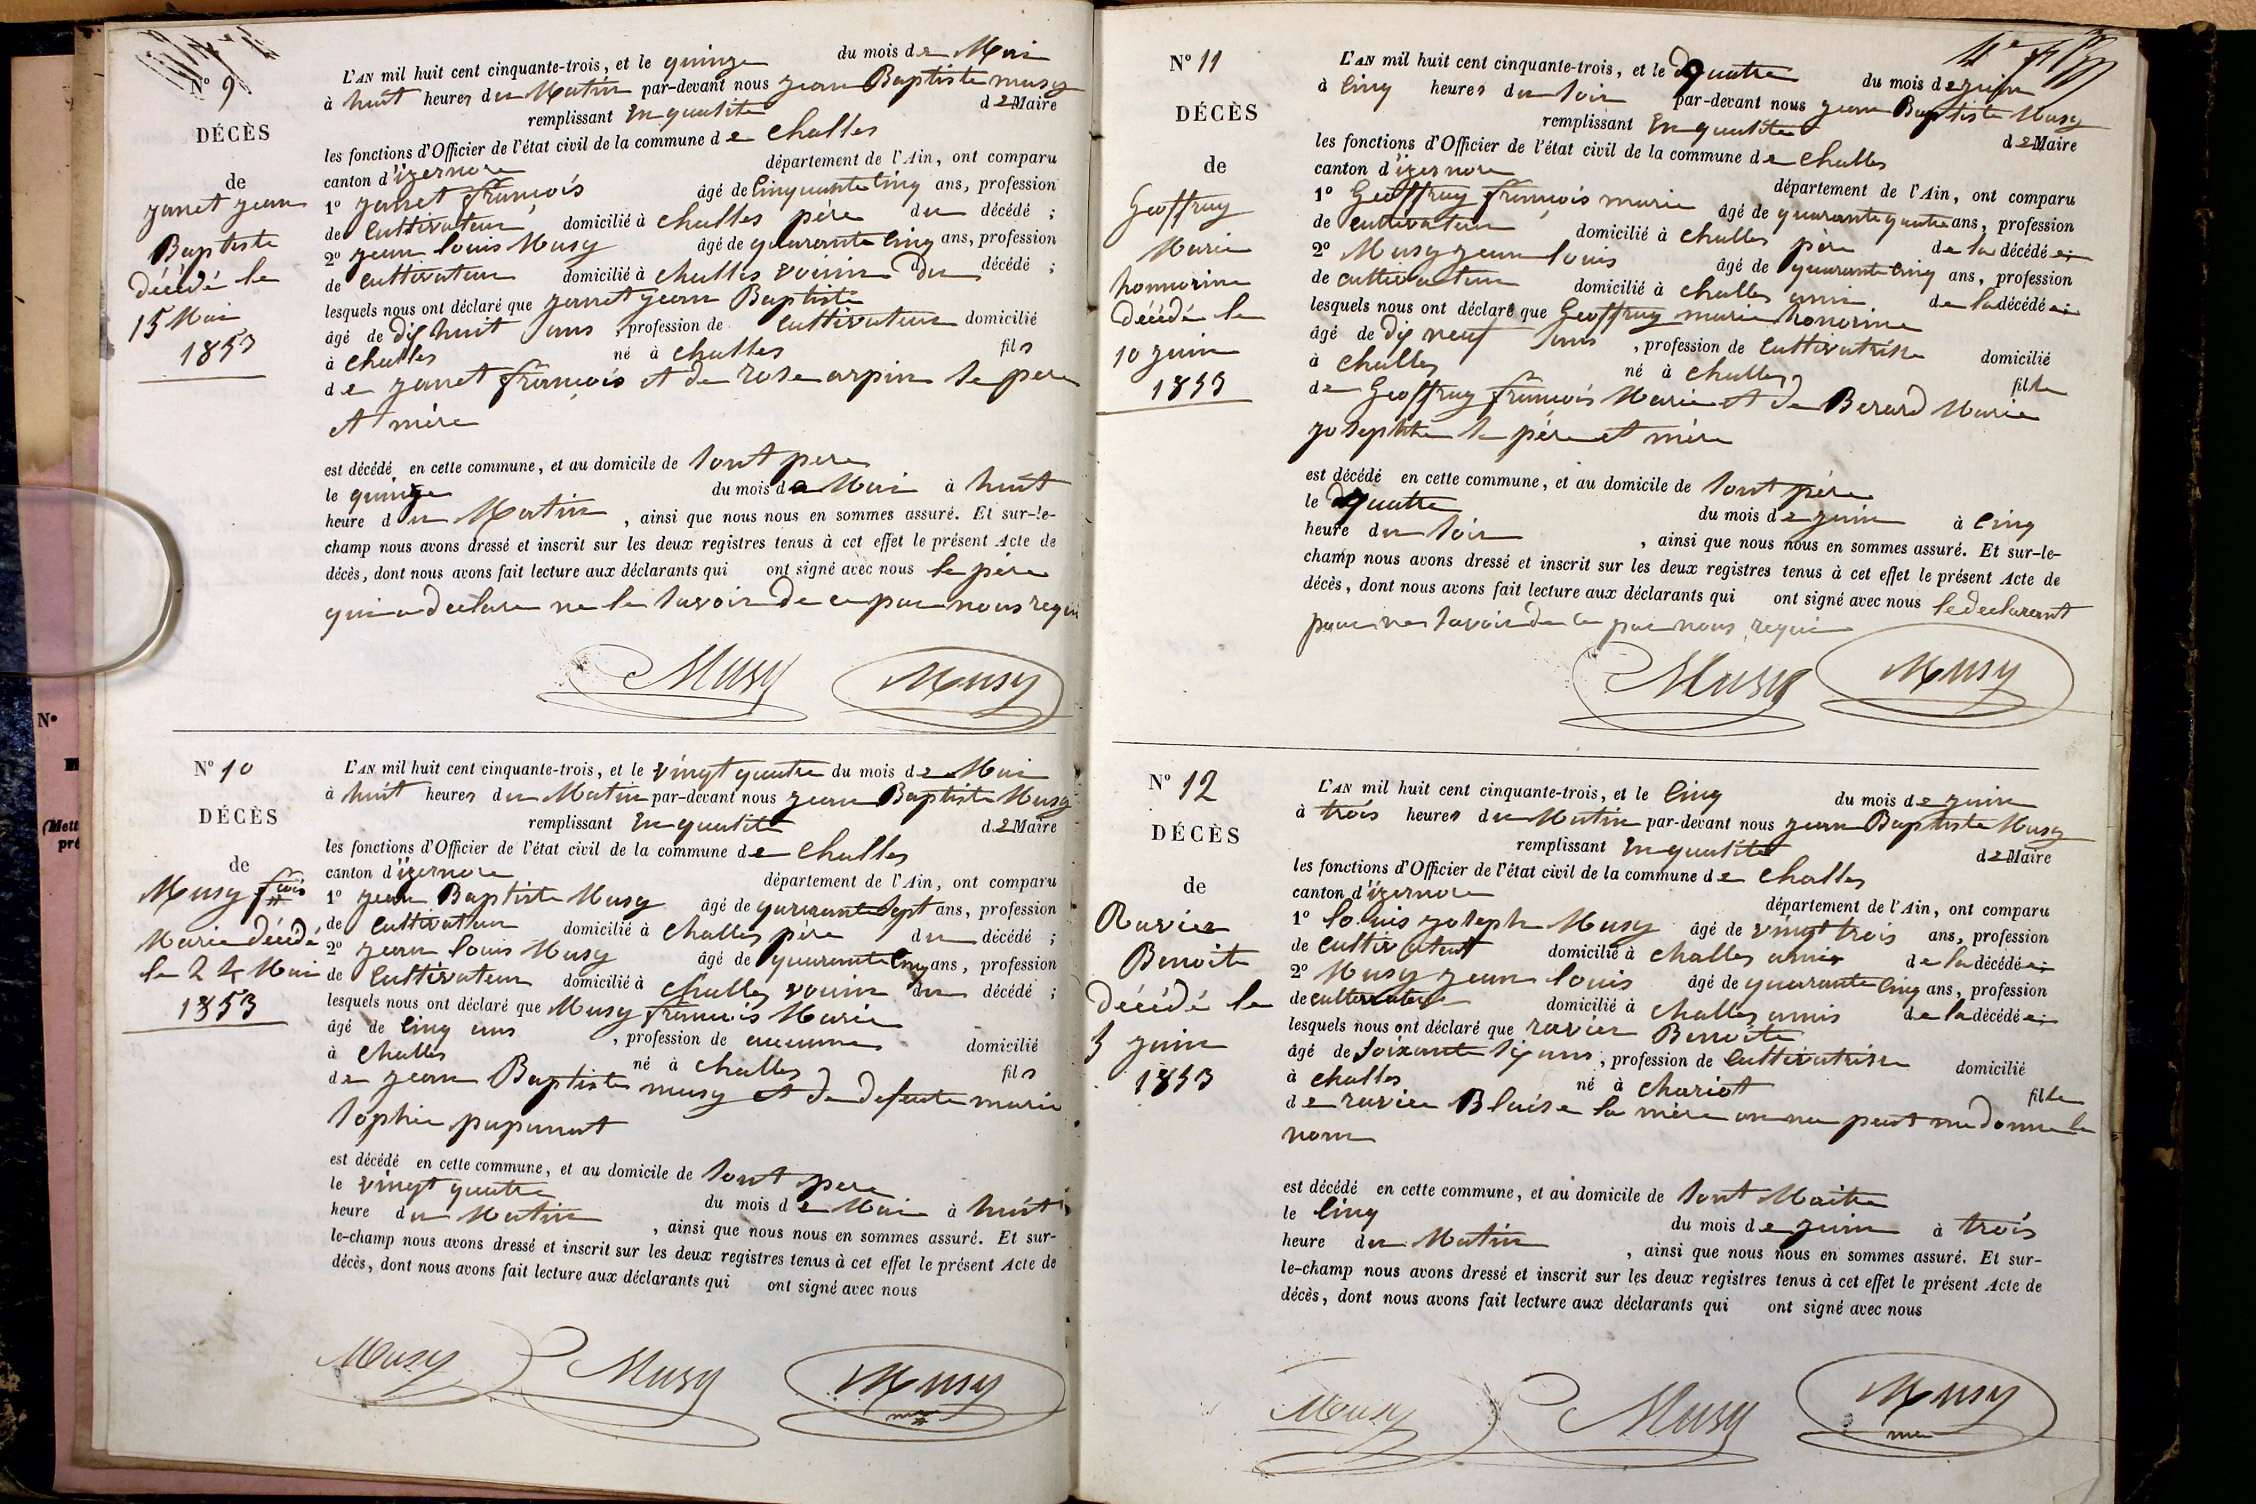 Nº 9
DÉCÈS
de
janet jean
Baptiste
décédé le
15 Mai
1853
L'AN mil huit cent cinquante-trois, et le quinze du mois de Mai
à huit heures du Matin par-devant nous jean Baptiste musy
remplissant En qualité de Maire
les fonctions d'Officier de l'état civil de la commune de challes
canton d'izernore département de l'Ain, ont comparu
1º janet françois âgé de Cinquante Cinq ans, profession
de Cultivateur domicilié à challes père du décédé ;
2º jean louis Musy âgé de quarante Cinq ans, profession
de cultivateur domicilié à challes voisin du décédé ;
lesquels nous ont déclaré que janet jean Baptiste
âgé de dix huit ans , profession de cultivateur domicilié
à challes né à challes fils
de janet françois et de rose arpin se pere
et mère
est décédé en cette commune, et au domicile de sont pere
le quinze du mois de Mai à huit
heure du Matin , ainsi que nous nous en sommes assuré. Et sur-le-
champ nous avons dressé et inscrit sur les deux registres tenus à cet effet le présent Acte de
décès, dont nous avons fait lecture aux déclarants qui ont signé avec nous le père
qui a declare ne le savoir de ce par nous requi
Musy Musy
Nº 10
DÉCÈS
de
Musy fcois
Marie décédé
le 24 Mai
1853
L'AN mil huit cent cinquante-trois, et le vingt quatre du mois de Mai
à huit heures du Matin par-devant nous jean Baptiste Musy
remplissant En qualité de Maire
les fonctions d'Officier de l'état civil de la commune de challes
canton d'izernore département de l'Ain, ont comparu
1º jean Baptiste Musy âgé de quarante sept ans, profession
de cultivateur domicilié à challes père du décédé ;
2º jean louis Musy âgé de quarante Cinq ans, profession
de Cultivateur domicilié à challes voisin du décédé ;
lesquels nous ont déclaré que Musy françois Marie
âgé de cinq ans , profession de aucune domicilié
à challes né à challes fils
de jean Baptiste musy et de defunte marie
sophie papunat
est décédé en cette commune, et au domicile de sont pere
le vingt quatre du mois de Mai à huit
heure du Matin , ainsi que nous nous en sommes assuré. Et sur-
le-champ nous avons dressé et inscrit sur les deux registres tenus à cet effet le présent Acte de
décès, dont nous avons fait lecture aux déclarants qui ont signé avec nous
Musy Musy Musy
Nº 11
DÉCÈS
de
Geoffray
Marie
honnorine
décédé le
10 juin
1853
L'AN mil huit cent cinquante-trois, et le quatre du mois de juin
à Cinq heures du soir par-devant nous jean Baptiste Musy
remplissant En qualité de Maire
les fonctions d'Officier de l'état civil de la commune de challes
canton d'izernore département de l'Ain, ont comparu
1º Geoffray françois marie âgé de quarante quatre ans, profession
de cultivateur domicilié à challes père de la décédé
2º Musy jean louis âgé de quarante Cinq ans, profession
de cultivateur domicilié à challes ami de la décédé
lesquels nous ont déclaré que Geoffray marie honorine
âgé de dix neuf ans , profession de cultivatrise domicilié
à challes né à challes fille
de Geoffray françois Marie et de Berard Marie
josephte se père et mère
est décédé en cette commune, et au domicile de sont père
le quatre du mois de juin à Cinq
heure du soir , ainsi que nous nous en sommes assuré. Et sur-le-
champ nous avons dressé et inscrit sur les deux registres tenus à cet effet le présent Acte de
décès, dont nous avons fait lecture aux déclarants qui ont signé avec nous le declarent
pour ne savoir de ce par nous requi
Musy Musy
Nº 12
DÉCÈS
de
Ravier
Benoite
décédé le
5 juin
1853
L'AN mil huit cent cinquante-trois, et le Cinq du mois de juin
à trois heures du Matin par-devant nous jean Baptiste Musy
remplissant En qualité de Maire
les fonctions d'Officier de l'état civil de la commune de challes
canton d'izernore département de l'Ain, ont comparu
1º louis joseph Musy âgé de vingt trois ans, profession
de cultivateur domicilié à challes amis de la décédé
2º Musy jean louis âgé de quarante Cinq ans, profession
de cultivateur domicilié à challes amis de la décédé
lesquels nous ont déclaré que ravier Benoite
âgé de soixante six ans , profession de Cultivatrise domicilié
à challes né à chariot fille
de ravier Blaise la mère on ne peut me donne le
nom
est décédé en cette commune, et au domicile de sont Maitre
le Cinq du mois de juin à trois
heure du Matin , ainsi que nous nous en sommes assuré. Et sur-
le-champ nous avons dressé et inscrit sur les deux registres tenus à cet effet le présent Acte de
décès, dont nous avons fait lecture aux déclarants qui ont signé avec nous
Musy Musy Musy